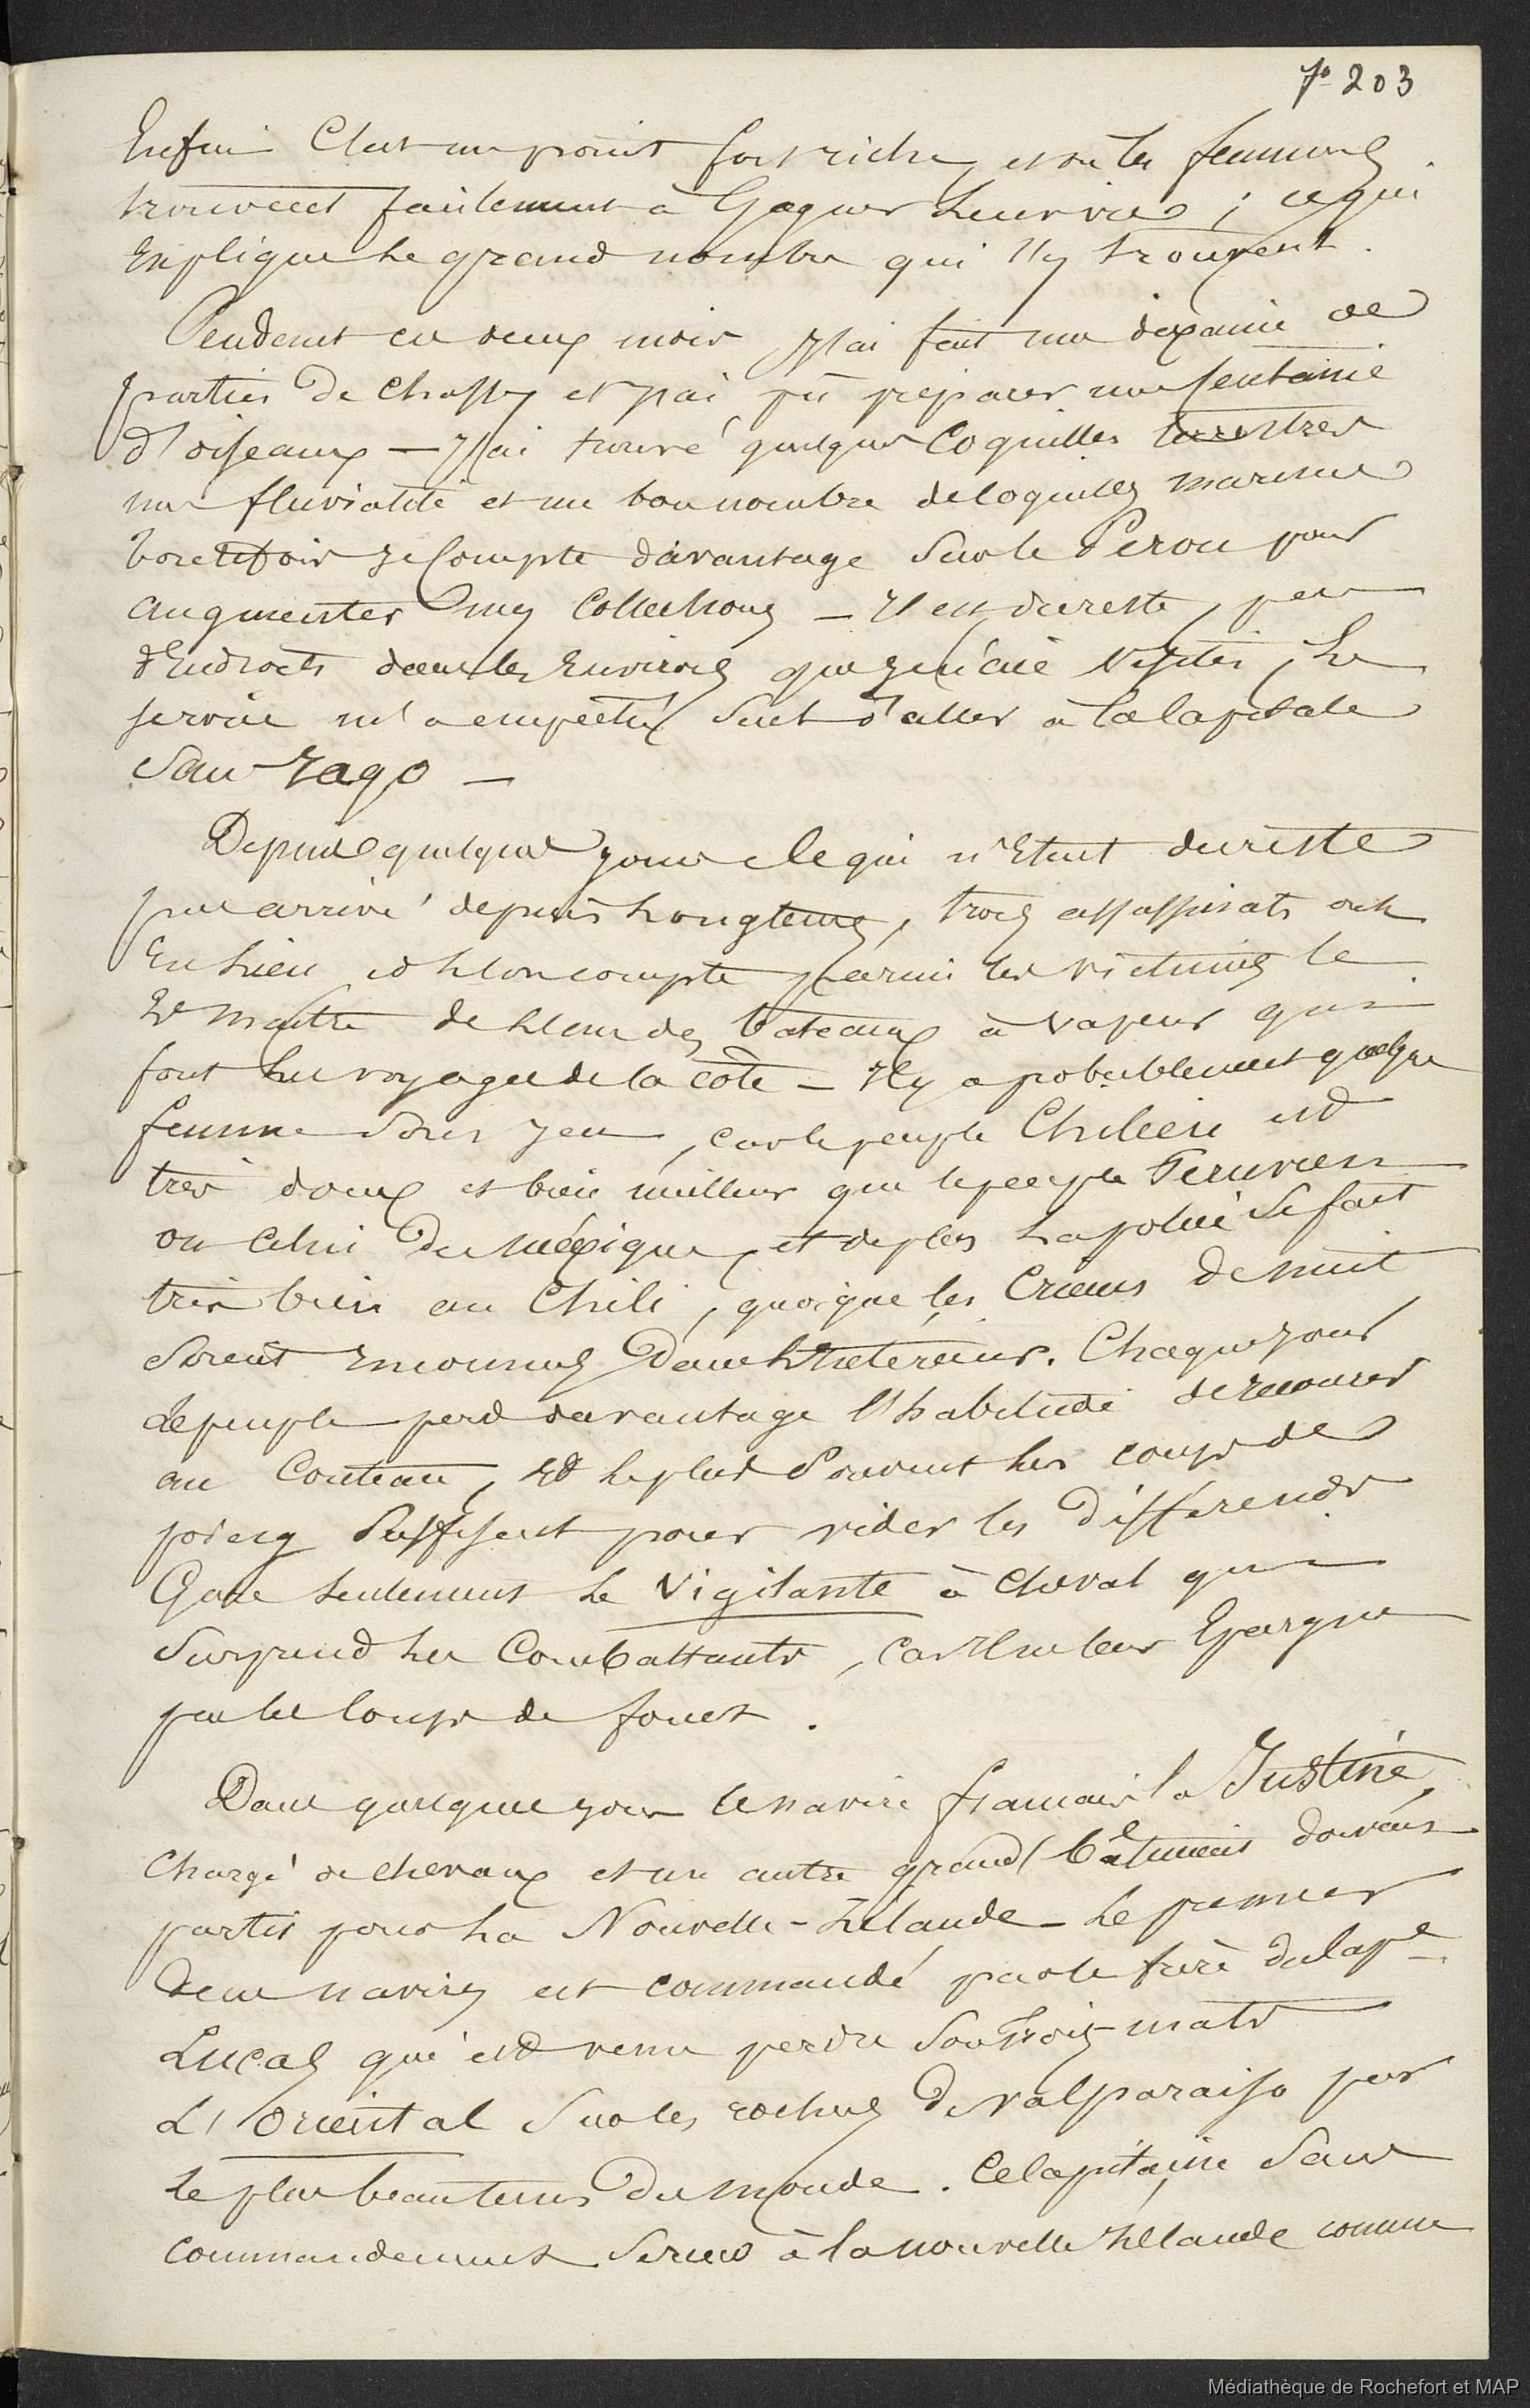 fo 203
Enfin C'est un point fort riche, et où les femmes
trouvent facilement à Gagner leur vie ; ce qui
Explique le grand nombre qui s'y trouvent.
Pendant ces deux mois j'ai fait une dixaine de
parties de chasse et j'ai pû préparer une centaine
d'oiseaux — J'ai trouvé quelques Coquilles terrestres
une fluviatile et un bon nombre de Coquilles marines
toutefois je Compte davantage Sur le Pérou pour
augmenter mes Collections — Il est du reste, peu
d'Endroits dans les Environs que je n'aie visités, Le
service m'a empêché Seul d'aller à la Capitale
San-Iago —
Depuis quelques jours Ce qui n'était du reste
pas arrivé depuis longtems, trois assassinats ont
Eu lieu et l'on compte parmi les victimes le
2d maître de l'un des bateaux à vapeur qui
font les voyages de la côte — Il y a probablement quelque
femme sous jeu, car le peuple Chilien est
très doux et bien meilleur que le peuple Péruvien
ou Celui du Méxique, et de plus la police se fait
très bien au Chili, quoique les Crieurs de nuit
soient inconnus Dans l'Intérieur. Chaque jour
le peuple perd davantage l'habitude de recourir
au Couteau, et le plus Souvent les coups de
poing Suffisent pour vider les Différends
Gare seulement le Vigilante à cheval qui
Surprend les Combattants, car Il ne leur Epargne
pas les coups de fouet.
Dans quelques jours le navire français la Justine,
Chargé de chevaux et un autre grand bâtiment doivent
partir pour la Nouvelle-Zélande — Le premier
de ces navires est commandé par le frère du Cape
Lucas qui est venu perdre Son trois-mats
L'Oriental Sur les rochers de Valparaiso par
le plus beau tems Du Monde. Ce Capitaine Sans
commandement Servira à la nouvelle Zélande comme
Médiathèque de Rochefort et MAP